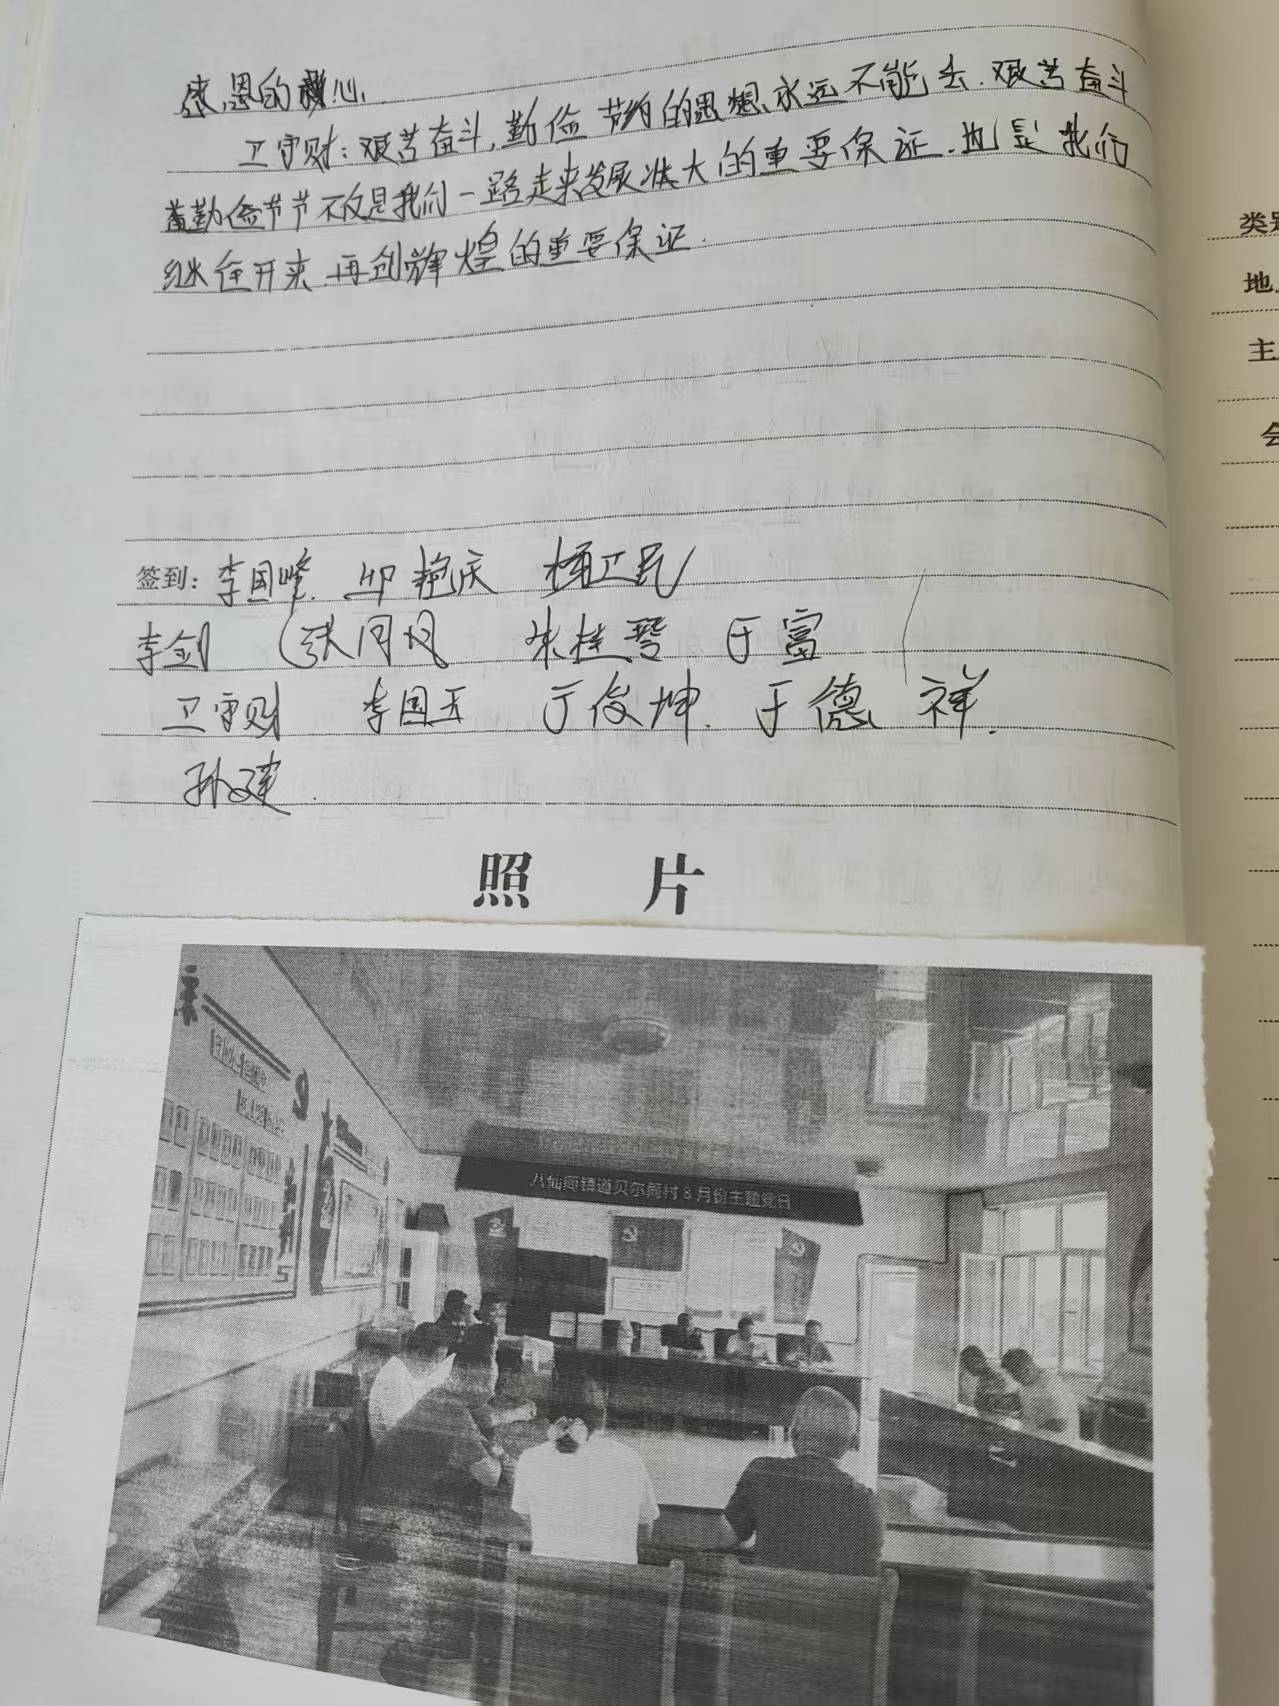 感恩的心.
卫守财:艰苦奋斗,勤俭节约的思想,永远不能丢.艰苦奋斗
勤俭节 不仅是我们一路走来发展壮大的重要保证.也是我们
继往开来.再创辉煌的重要保证.
签到:李国峰. 邱艳庆 杨卫民
李剑 张同风 朱桂琴 于富
卫守财 李国玉 于俊坤. 于德祥.
孙建.
照 片
八仙筒镇道贝尔筒村8月份主题党日
类别
地
主
会